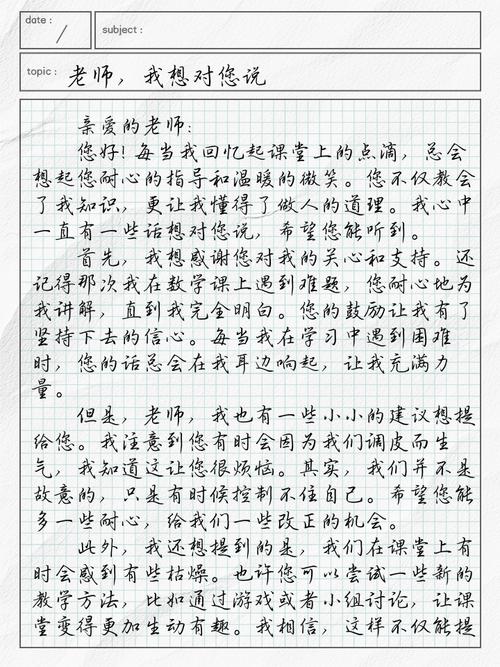 date :
subject :
topic : 老师，我想对您说
亲爱的老师:
您好!每当我回忆起课堂上的点滴，总会
想起您耐心的指导和温暖的微笑。您不仅教会
了我知识，更让我懂得了做人的道理。我心中
一直有一些话想对您说，希望您能听到。
首先，我想感谢您对我的关心和支持。还
记得那次我在数学课上遇到难题，您耐心地为
我讲解，直到我完全明白。您的鼓励让我有了
坚持下去的信心。每当我在学习中遇到困难
时，您的话总会在我耳边响起，让我充满力
量。
但是，老师，我也有一些小小的建议想提
给您。我注意到您有时会因为我们调皮而生
气，我知道这让您很烦恼。其实，我们并不是
故意的，只是有时候控制不住自己。希望您能
多一些耐心，给我们一些改正的机会。
此外，我还想提到的是，我们在课堂上有
时会感到有些枯燥。也许您可以尝试一些新的
教学方法，比如通过游戏或者小组讨论，让课
堂变得更加生动有趣。我相信，这样不仅能提